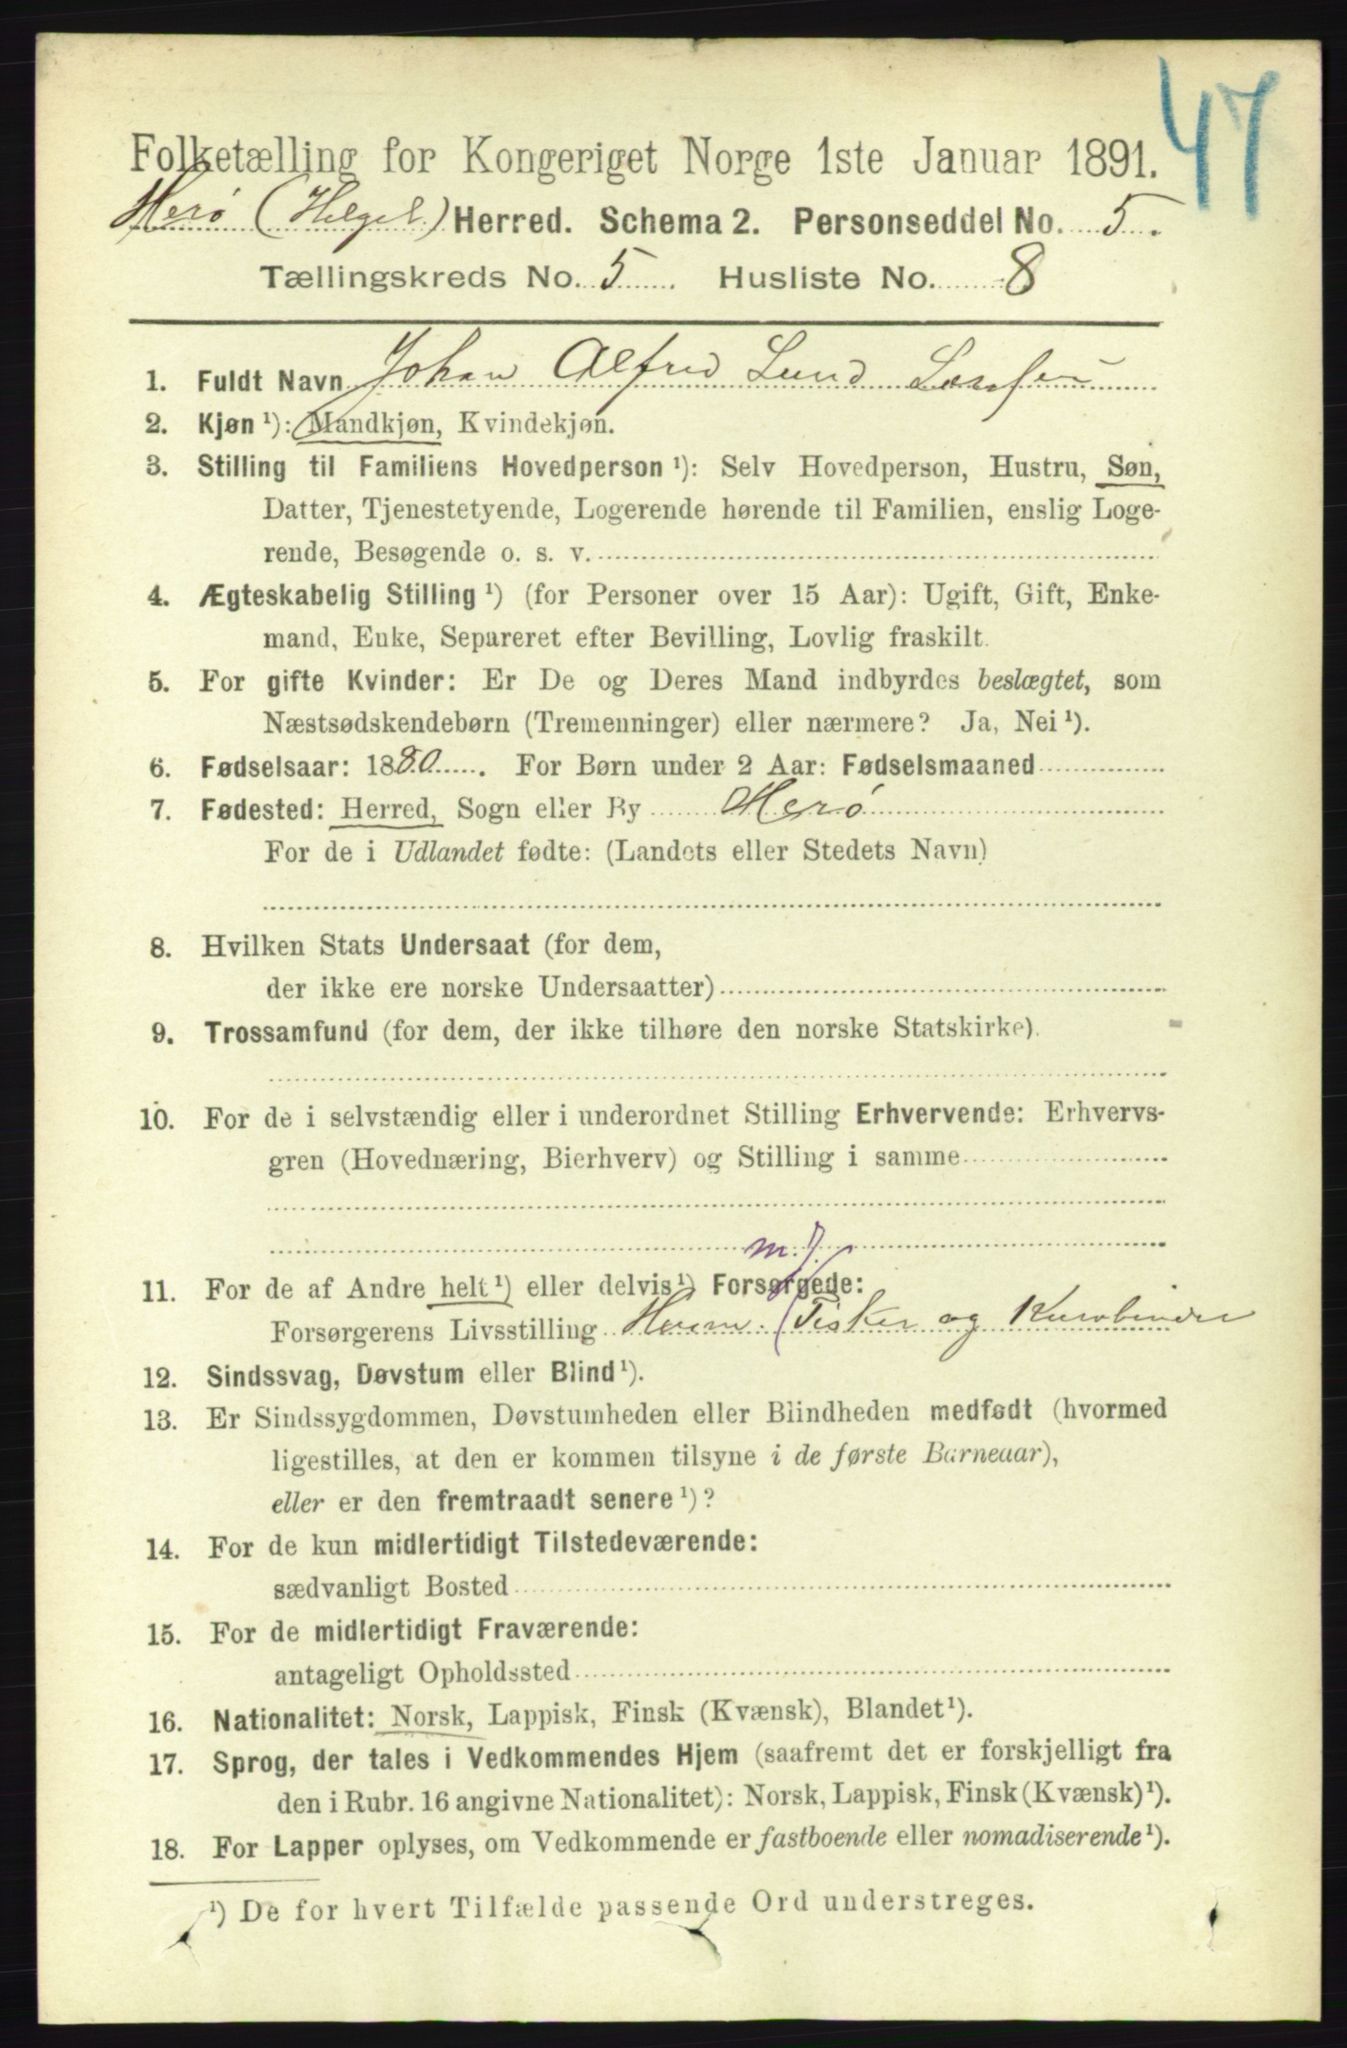 47
Folketælling for Kongeriget Norge 1ste Januar 1891.
Herø (Helgel.) Herred. Schema 2. Personseddel No. 5.
Tællingskreds No. 5 Husliste No. 8
1. Fuldt Navn Johan Alfred Lund
2. Kjøn ¹): Mandkjøn, Kvindekjøn.
3. Stilling til Familiens Hovedperson ¹): Selv Hovedperson, Hustru, Søn,
Datter, Tjenestetyende, Logerende hørende til Familien, enslig Loge-
rende, Besøgende o. s. v.
4. Ægteskabelig Stilling ¹) (for Personer over 15 Aar): Ugift, Gift, Enke-
mand, Enke, Separeret efter Bevilling, Lovlig fraskilt.
5. For gifte Kvinder: Er De og Deres Mand indbyrdes beslægtet, som
Næstsødskendebørn (Tremenninger) eller nærmere? Ja, Nei ¹).
6. Fødselsaar: 1880. For Børn under 2 Aar: Fødselsmaaned
7. Fødested: Herred, Sogn eller By Herø
For de i Udlandet fødte: (Landets eller Stedets Navn)
8. Hvilken Stats Undersaat (for dem,
der ikke ere norske Undersaatter)
9. Trossamfund (for dem, der ikke tilhøre den norske Statskirke).
10. For de i selvstændig eller i underordnet Stilling Erhvervende: Erhvervs-
gren (Hovednæring, Bierhverv) og Stilling i samme
m. J.
11. For de af Andre helt ¹) eller delvis ¹) Forsørgede:
Forsørgerens Livsstilling Husm. Fisker og Kurvbinder
12. Sindssvag, Døvstum eller Blind ¹).
13. Er Sindssygdommen, Døvstumheden eller Blindheden medfødt (hvormed
ligestilles, at den er kommen tilsyne i de første Barneaar),
eller er den fremtraadt senere ¹)?
14. For de kun midlertidigt Tilstedeværende:
sædvanligt Bosted
15. For de midlertidigt Fraværende:
antageligt Opholdssted
16. Nationalitet: Norsk, Lappisk, Finsk (Kvænsk), Blandet ¹).
17. Sprog, der tales i Vedkommendes Hjem (saafremt det er forskjelligt fra
den i Rubr. 16 angivne Nationalitet): Norsk, Lappisk, Finsk (Kvænsk) ¹).
18. For Lapper oplyses, om Vedkommende er fastboende eller nomadiserende ¹).
¹) De for hvert Tilfælde passende Ord understreges.